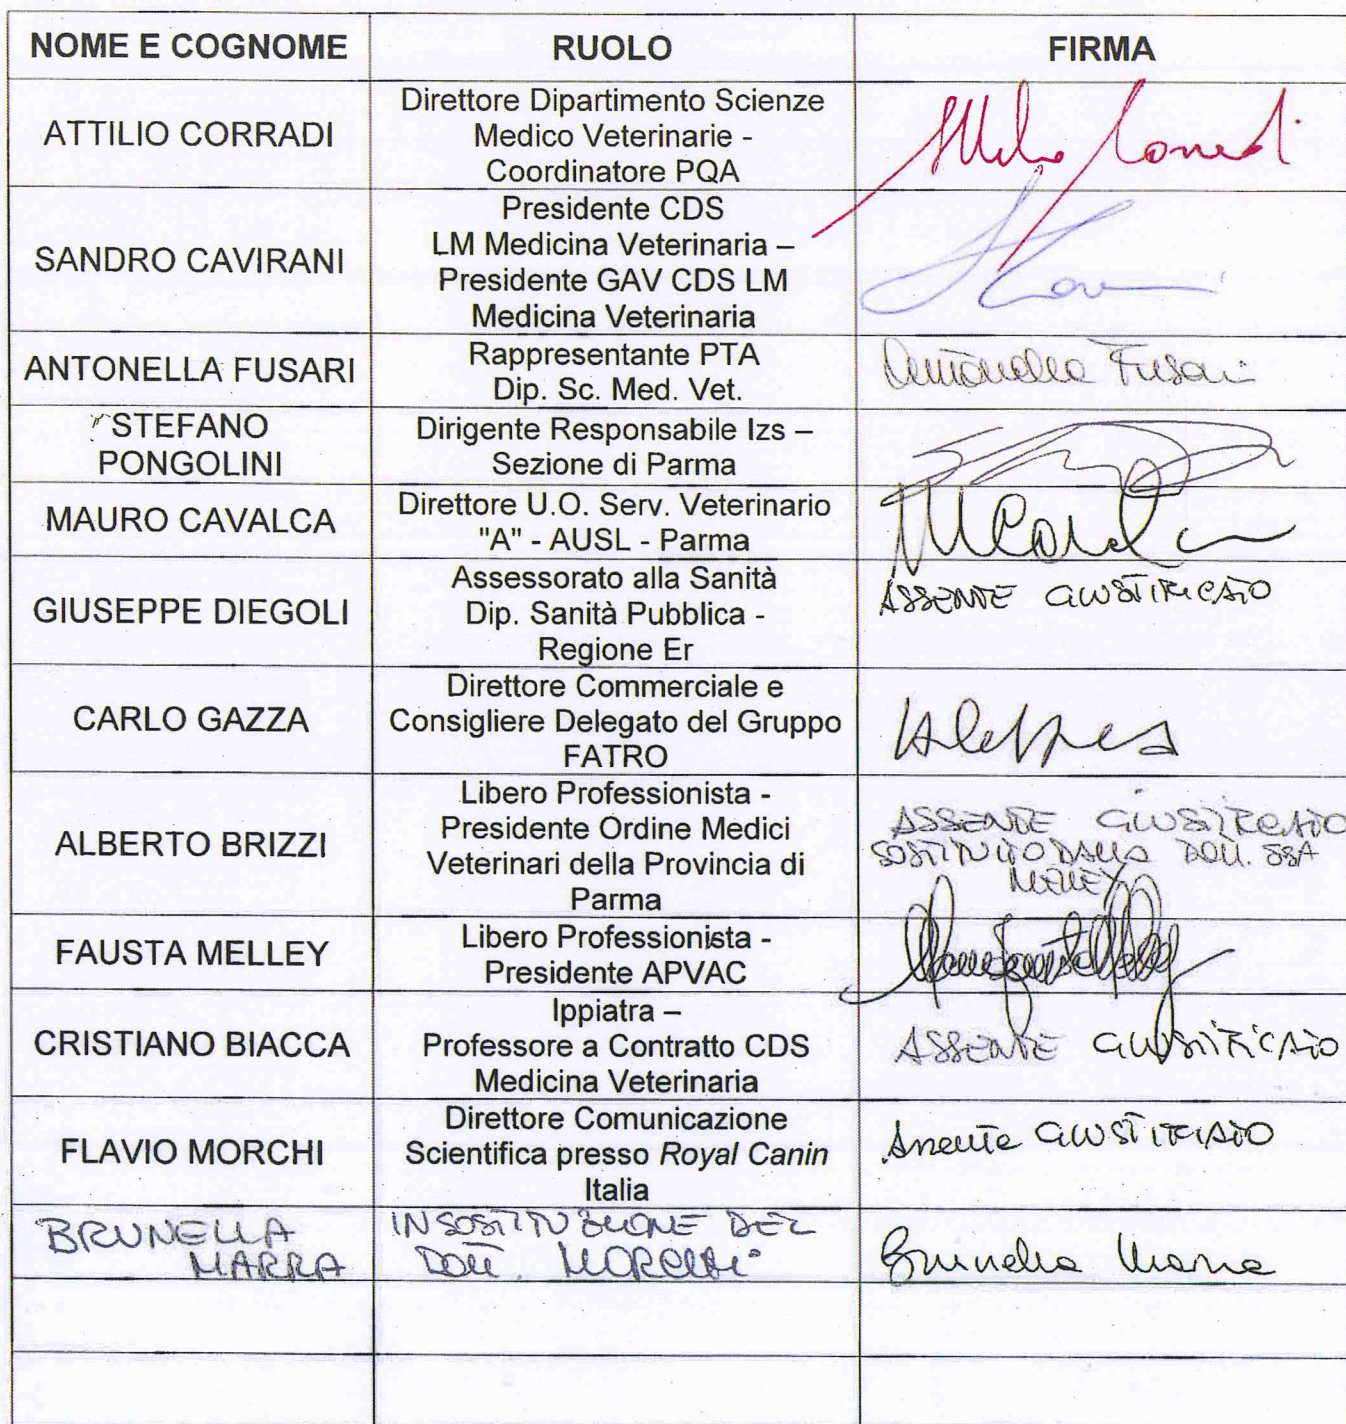 NOME E COGNOME RUOLO FIRMA
ATTILIO CORRADI
Direttore Dipartimento Scienze
Medico Veterinarie -
Coordinatore PQA
Attilio Corradi
SANDRO CAVIRANI
Presidente CDS
LM Medicina Veterinaria –
Presidente GAV CDS LM
Medicina Veterinaria
ANTONELLA FUSARI
Rappresentante PTA
Dip. Sc. Med. Vet.
Antonella Fusari
STEFANO
PONGOLINI
Dirigente Responsabile Izs –
Sezione di Parma
MAURO CAVALCA
Direttore U.O. Serv. Veterinario
"A" - AUSL - Parma
GIUSEPPE DIEGOLI
Assessorato alla Sanità
Dip. Sanità Pubblica -
Regione Er
ASSENTE GIUSTIFICATO
CARLO GAZZA
Direttore Commerciale e
Consigliere Delegato del Gruppo
FATRO
ALBERTO BRIZZI
Libero Professionista -
Presidente Ordine Medici
Veterinari della Provincia di
Parma
ASSENTE GIUSTIFICATO
SOSTITUITO DALLA DOTT.SSA
MELLEY
FAUSTA MELLEY
Libero Professionista -
Presidente APVAC
CRISTIANO BIACCA
Ippiatra –
Professore a Contratto CDS
Medicina Veterinaria
ASSENTE GIUSTIFICATO
FLAVIO MORCHI
Direttore Comunicazione
Scientifica presso Royal Canin
Italia
Assente GIUSTIFICATO
BRUNELLA
MARRA
IN SOSTITUZIONE DEL
DOTT. MORCHI
Brunella Marra